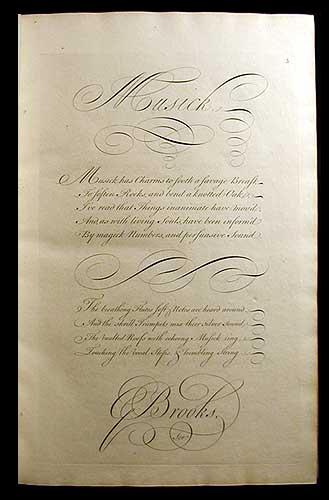 Musick
Musick has Charms to sooth a savage Breast,
To soften Rocks, and bend a knotted Oak;
I've read that Things inanimate have mov'd,
And as with living Souls, have been inform'd
By magick Numbers, and persuasive Sound.
The breathing Flutes soft Notes are heard around
And the shrill Trumpets mix their Silver Sound
The vaulted Roofs with echoing Musick ring,
Touching the vocal Stops, & trembling String.
Brooks,